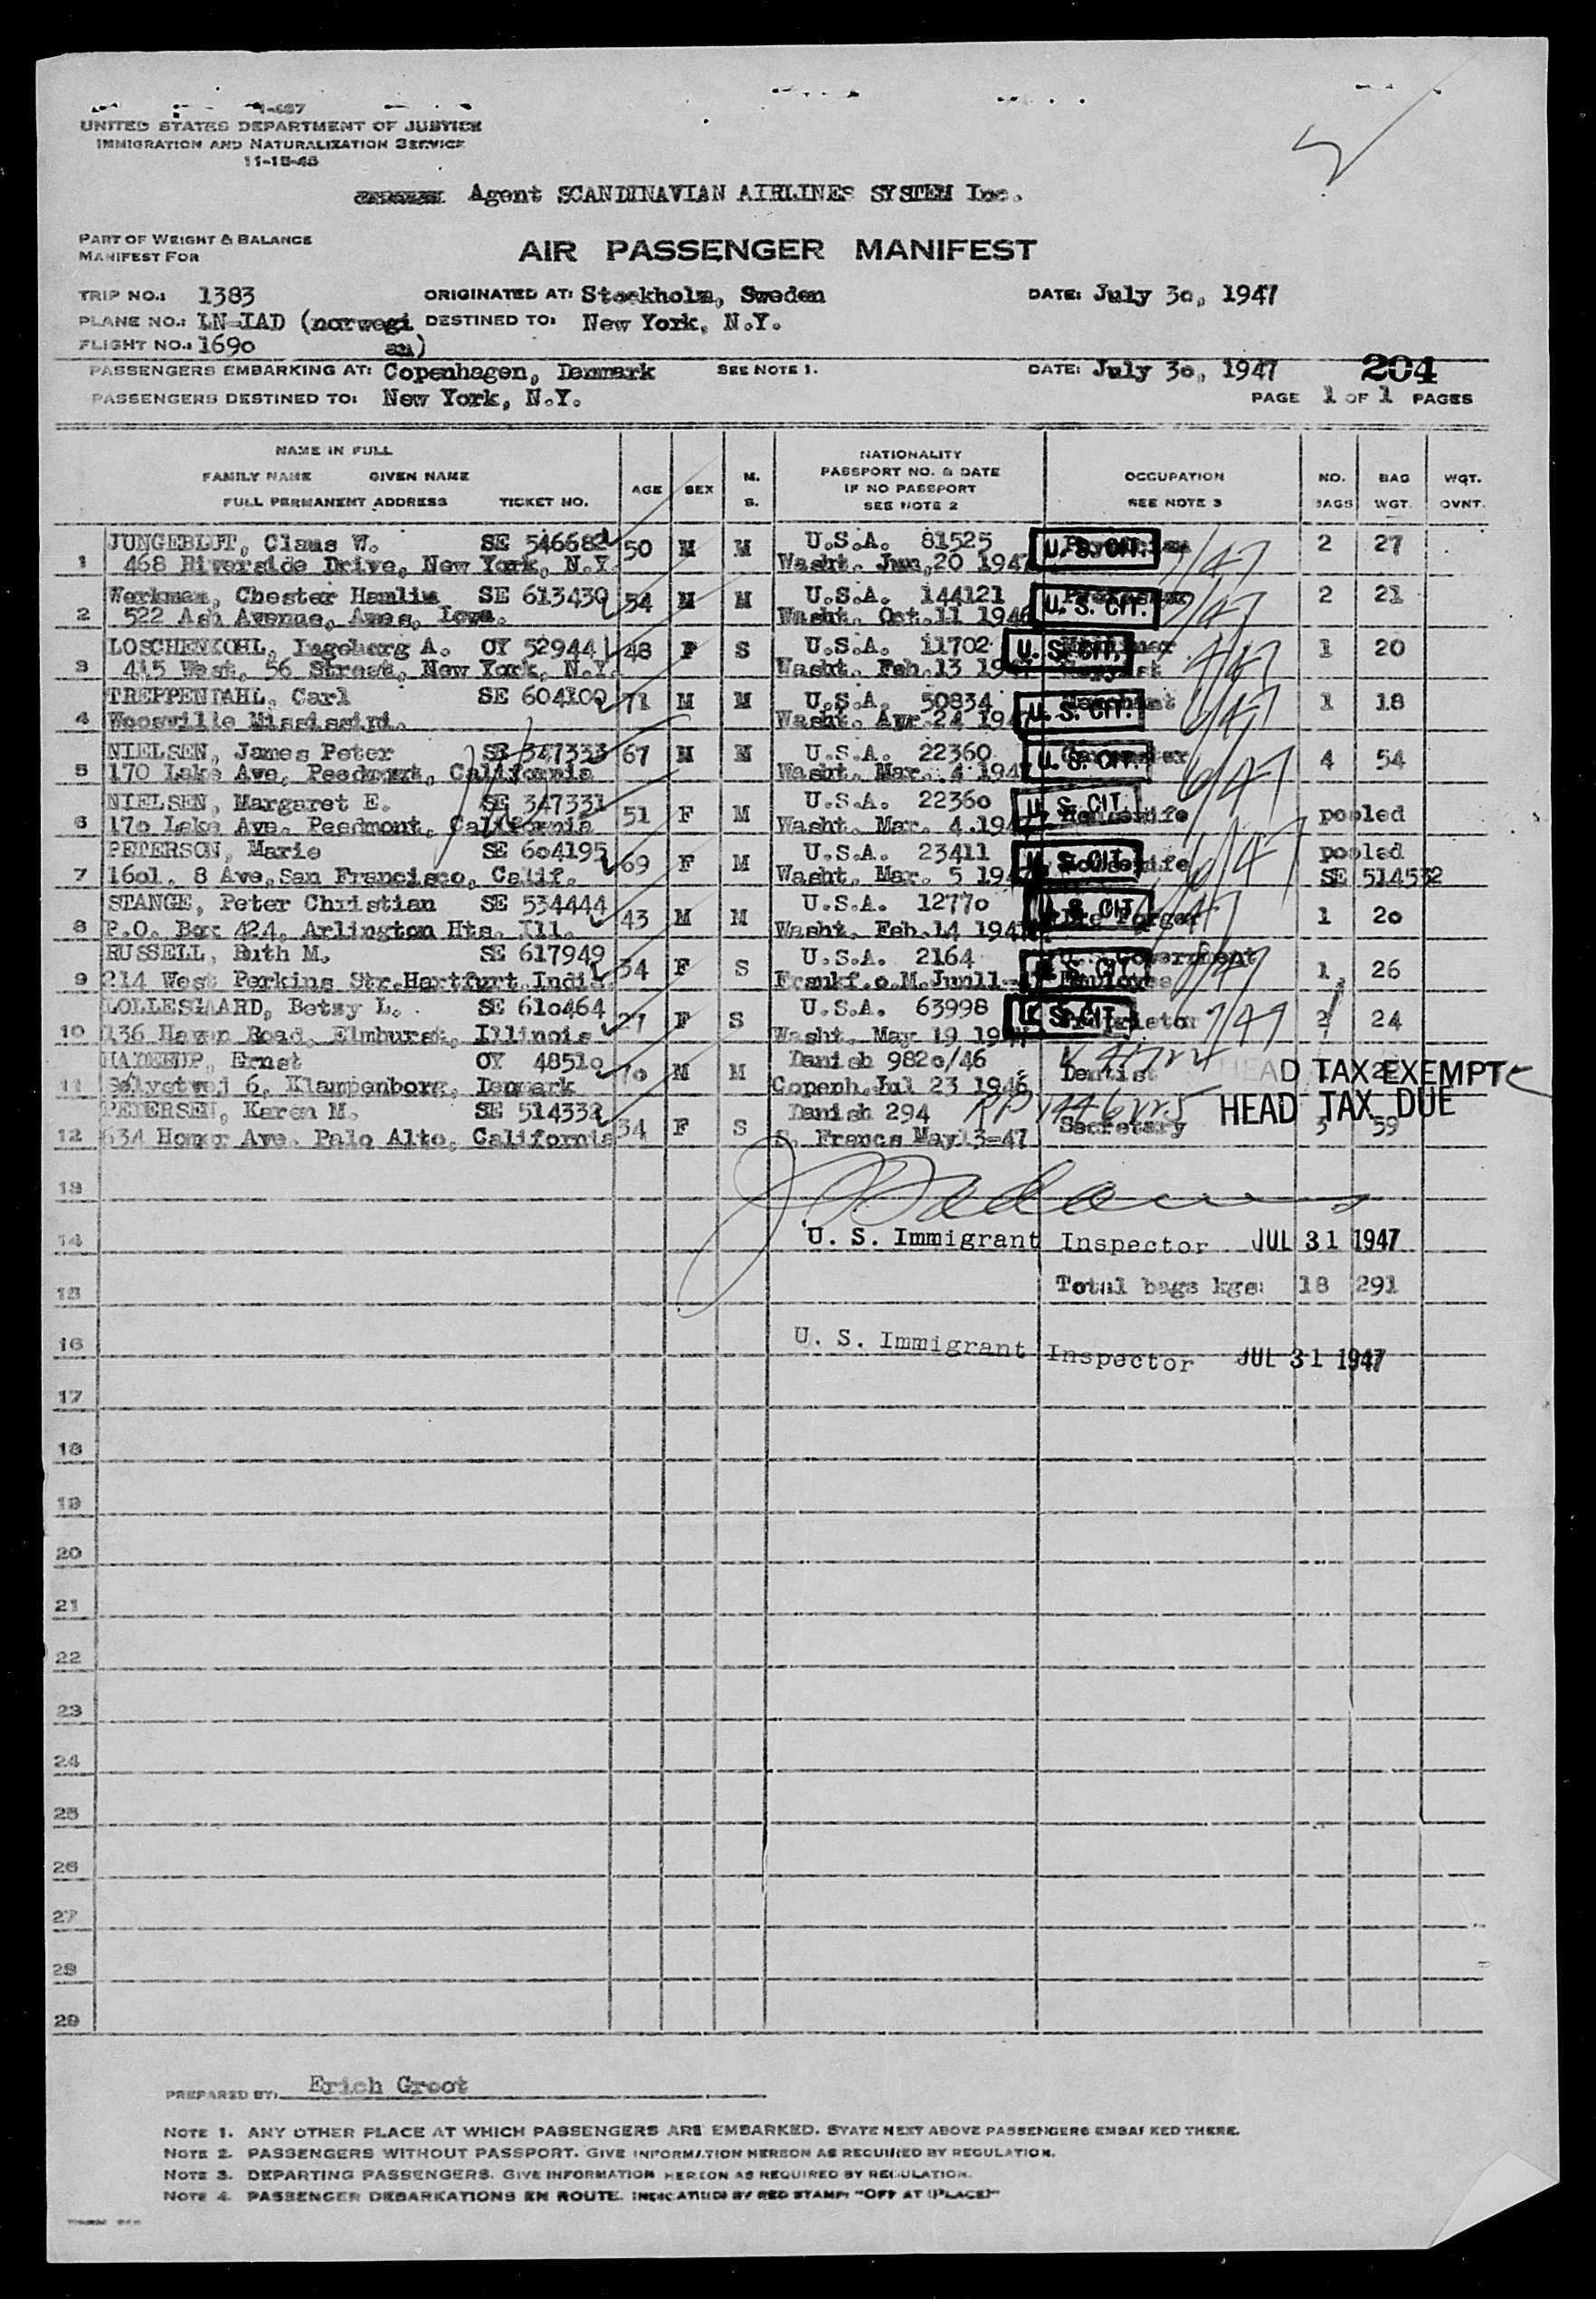 I-467
UNITED STATES DEPARTMENT OF JUSTICE
IMMIGRATION AND NATURALIZATION SERVICE
11-18-43
Agent SCANDINAVIAN AIRLINES SYSTEM Inc.
PART OF WEIGHT & BALANCE
MANIFEST FOR
AIR PASSENGER MANIFEST
TRIP NO.: 1383 ORIGINATED AT: Stockholm, Sweden DATE: July 3o, 1947
PLANE NO.: LN-IAD (norwegi DESTINED TO: New York, N.Y.
FLIGHT NO.: 169o an)
PASSENGERS EMBARKING AT: Copenhagen, Denmark SEE NOTE 1. DATE: July 3o, 1947 204
PASSENGERS DESTINED TO: New York, N.Y. PAGE 1 OF 1 PAGES
NAME IN FULL
FAMILY NAME GIVEN NAME
FULL PERMANENT ADDRESS TICKET NO.
AGE SEX M. S.
NATIONALITY
PASSPORT NO. & DATE
IF NO PASSPORT
SEE NOTE 2
OCCUPATION
SEE NOTE 3
NO. BAGS
BAG WGT.
WGT. OVNT.
JUNGEBLUT, Claus W. SE 546682 50 M M U.S.A. 81525 U.S. CIT. 2 27
1 468 Riverside Drive, New York, N.Y. Washt. Jun,20 1947
Workman, Chester Hamlin SE 61343o 54 M M U.S.A. 144121 U.S. CIT. 2 21
2 522 Ash Avenue, Ames, Iowa. Washt. Oct.11 1946
LOSCHENKOHL, Ingeborg A. OY 52944 48 F S U.S.A. 11702 U.S. CIT. 1 20
3 415 West, 56 Street, New York, N.Y. Washt. Feb.13 1947
TREPPENDAHL, Carl SE 60410o 71 M M U.S.A. 50834 U.S. CIT. 1 18
4 Woosville Mississipi. Washt. Apr.24 1947
NIELSEN, James Peter SE 347333 67 M M U.S.A. 22360 U.S. CIT. 4 54
5 170 Lake Ave, Peedmont, California Washt. Mar. 4 1947
NIELSEN, Margaret E. SE 347331 51 F M U.S.A. 2236o U.S. CIT. Housewife pooled
6 17o Lake Ave. Peedmont, California Washt. Mar. 4.1947
PETERSON, Marie SE 6o4195 69 F M U.S.A. 23411 U.S. CIT. Housewife pooled
7 16o1. 8 Ave,San Francisco, Calif. Washt. Mar. 5 1947 SE 514532
STANGE, Peter Christian SE 534444 43 M M U.S.A. 1277o U.S. CIT. 1 2o
8 P.O. Box 424, Arlington Hts. Ill. Washt. Feb.14 1947
RUSSELL, Ruth M. SE 617949 34 F S U.S.A. 2164 U.S. CIT. Government 1 26
9 214 West Perkins Str.Hartfurt.India. Frankf.o.M.Jun11- Employee
LOLLESGAARD, Betsy L. SE 61o464 27 F S U.S.A. 63998 U.S. CIT. 7/47 2 24
10 136 Haven Road, Elmhurst, Illinois Washt. May 19 1947
HADERUP, Ernst OY 4851o 7o M M Danish 982o/46 Dentist HEAD TAX EXEMPT
11 Sølystvej 6, Klampenborg, Denmark Copenh.Jul 23 1946
PEDERSEN, Karen M. SE 514332 34 F S Danish 294 Secretary HEAD TAX DUE 3 59
12 634 Homer Ave. Palo Alto, California S. Francs May13-47
13
14 U. S. Immigrant Inspector JUL 31 1947
15 Total bags kgs: 18 291
16 U. S. Immigrant Inspector JUL 31 1947
17
18
19
20
21
22
23
24
25
26
27
28
29
PREPARED BY: Erich Groot
NOTE 1. ANY OTHER PLACE AT WHICH PASSENGERS ARE EMBARKED. STATE NEXT ABOVE PASSENGERS EMBARKED THERE.
NOTE 2. PASSENGERS WITHOUT PASSPORT. GIVE INFORMATION HEREON AS REQUIRED BY REGULATION.
NOTE 3. DEPARTING PASSENGERS. GIVE INFORMATION HEREON AS REQUIRED BY REGULATION.
NOTE 4. PASSENGER DEBARKATIONS EN ROUTE. INDICATED BY RED STAMP: "OFF AT (PLACE)"